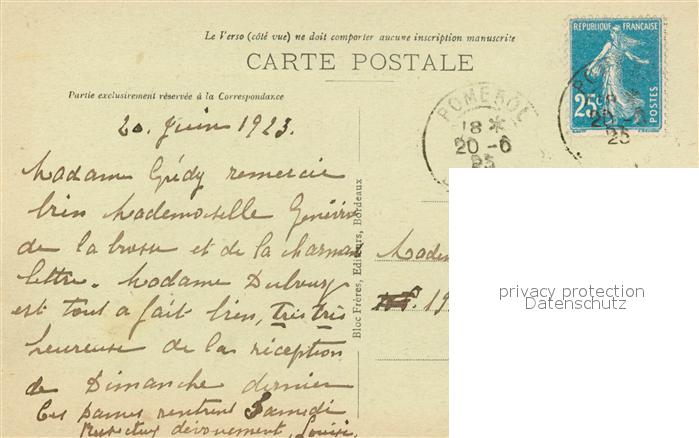 Le Verso (côté vue) ne doit comporter aucune inscription manuscrite
CARTE POSTALE
Partie exclusivement réservée à la Correspondance
RÉPUBLIQUE FRANÇAISE
25c
POSTES
POMEROL
18 *
20 - 6
23
20 - 6
23
20 Juin 1923.
Madame Grédy remercie
bien Mademoiselle Geneviève
de la brosse et de la charmante
lettre. Madame
est tout à fait bien, très très
heureuse de la réception
de Dimanche dernier
Ces dames rentrent Samedi
Respectueux dévouement, Louise.
Bloc Frères, Editeurs, Bordeaux
Madem
19
privacy protection
Datenschutz